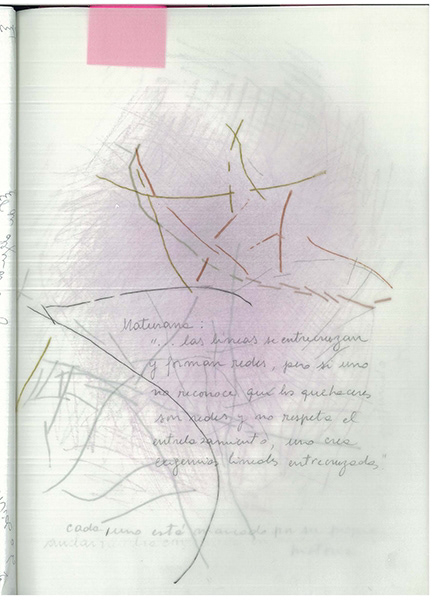 Maturana:
"... las líneas se entrecruzan
y forman redes, pero si uno
no reconoce que los quehaceres
son redes y no respeta el
entrelazamiento, uno crea
exigencias lineales entrecruzadas"
cada uno está marcado por su propia